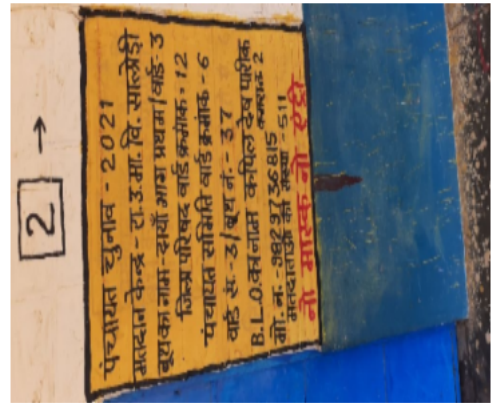 2 →
पंचायत चुनाव - 2021
मतदान केन्द्र - रा.उ.मा.वि. साल्रेडी
बूथ का नाम - दायाँ भाग प्रथम / वार्ड - 3
जिला परिषद वार्ड क्रमांक - 12
पंचायत समिति वार्ड क्रमांक - 6
वार्ड सं. - 3 / बूथ नं. - 37
B.L.O. का नाम कपिल देव पारीक
कमरा नं. 2
मो. न. - 9829736815
मतदाताओं की संख्या - 511
नो मास्क नो एंट्री